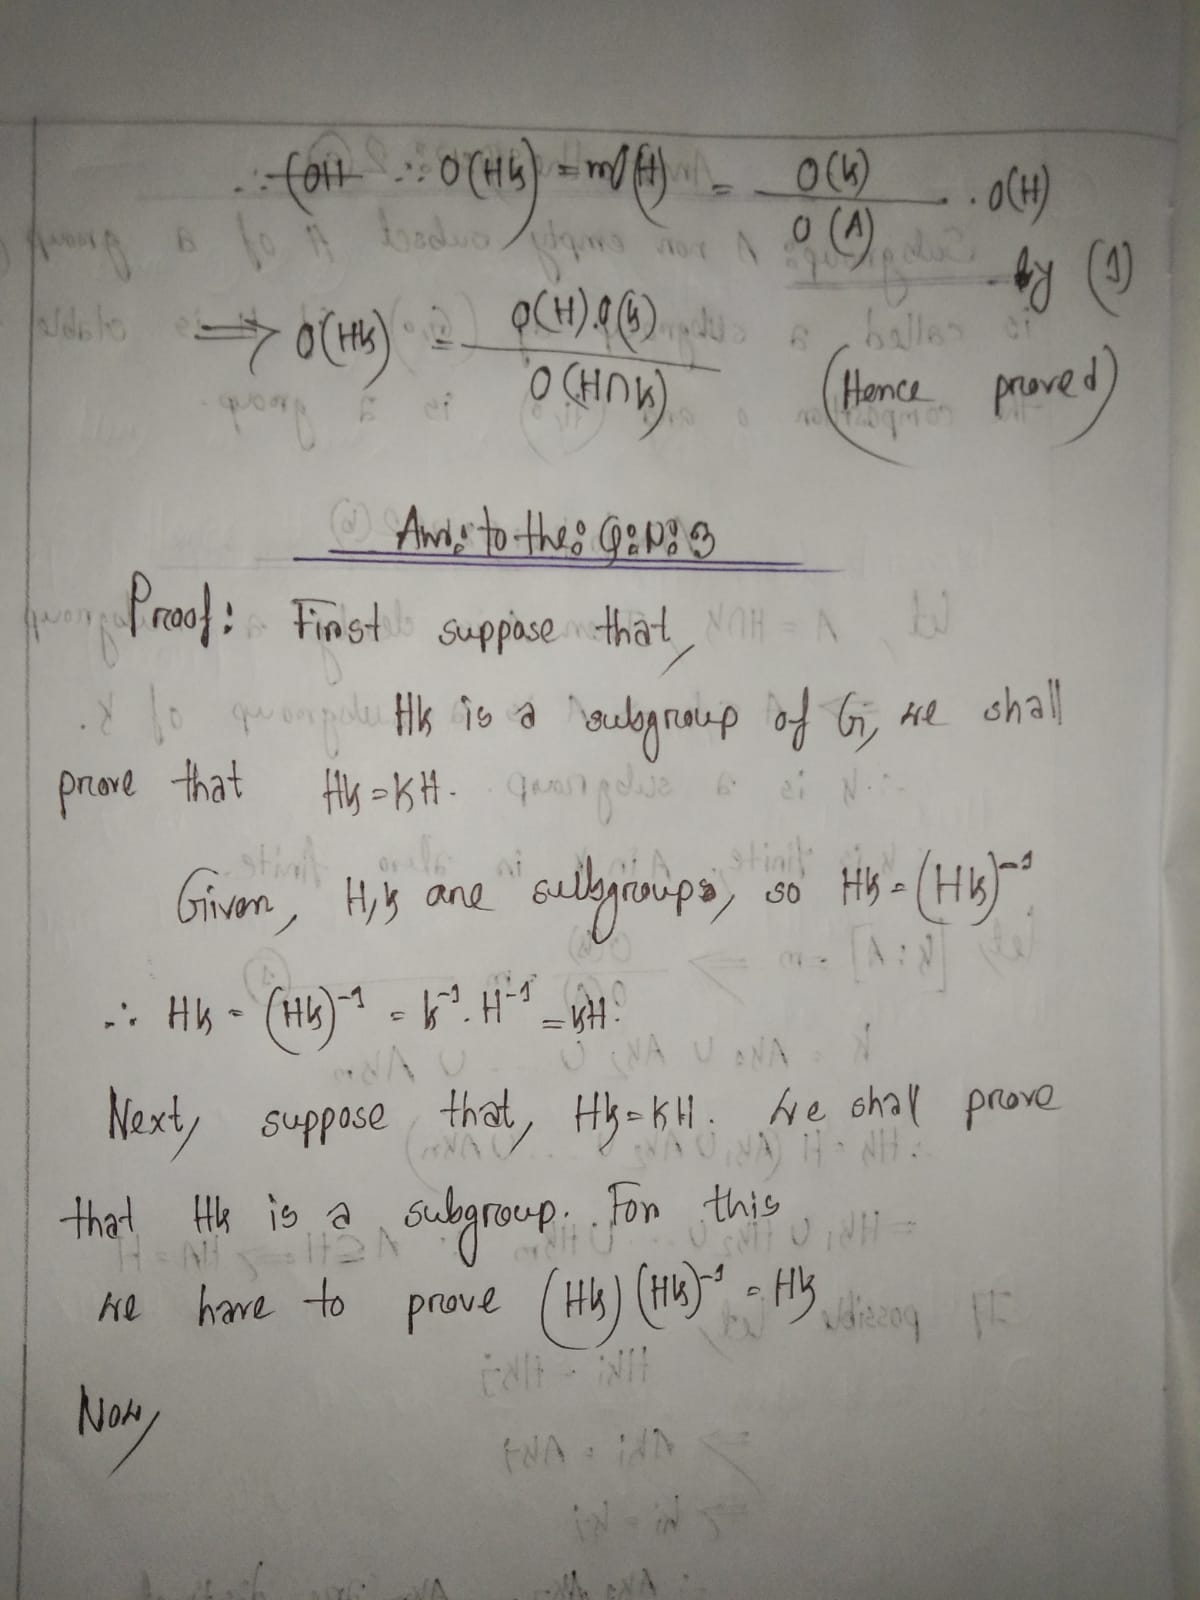 ∴ O(HK) = m O(H) = O(K)/O(A) . O(H)
by (1)
⟹ O(HK) = O(H).O(K)/O(H∩K) (Hence proved)
Ans: to the: Q: N: 3
Proof: First suppose that,
HK is a subgroup of G, we shall
prove that HK = KH.
Given, H, K are subgroups, so HK = (HK)⁻¹
∴ HK = (HK)⁻¹ = K⁻¹. H⁻¹ = KH.
Next, suppose that, HK = KH. We shall prove
that HK is a subgroup. For this
we have to prove (HK) (HK)⁻¹ = HK
Now,